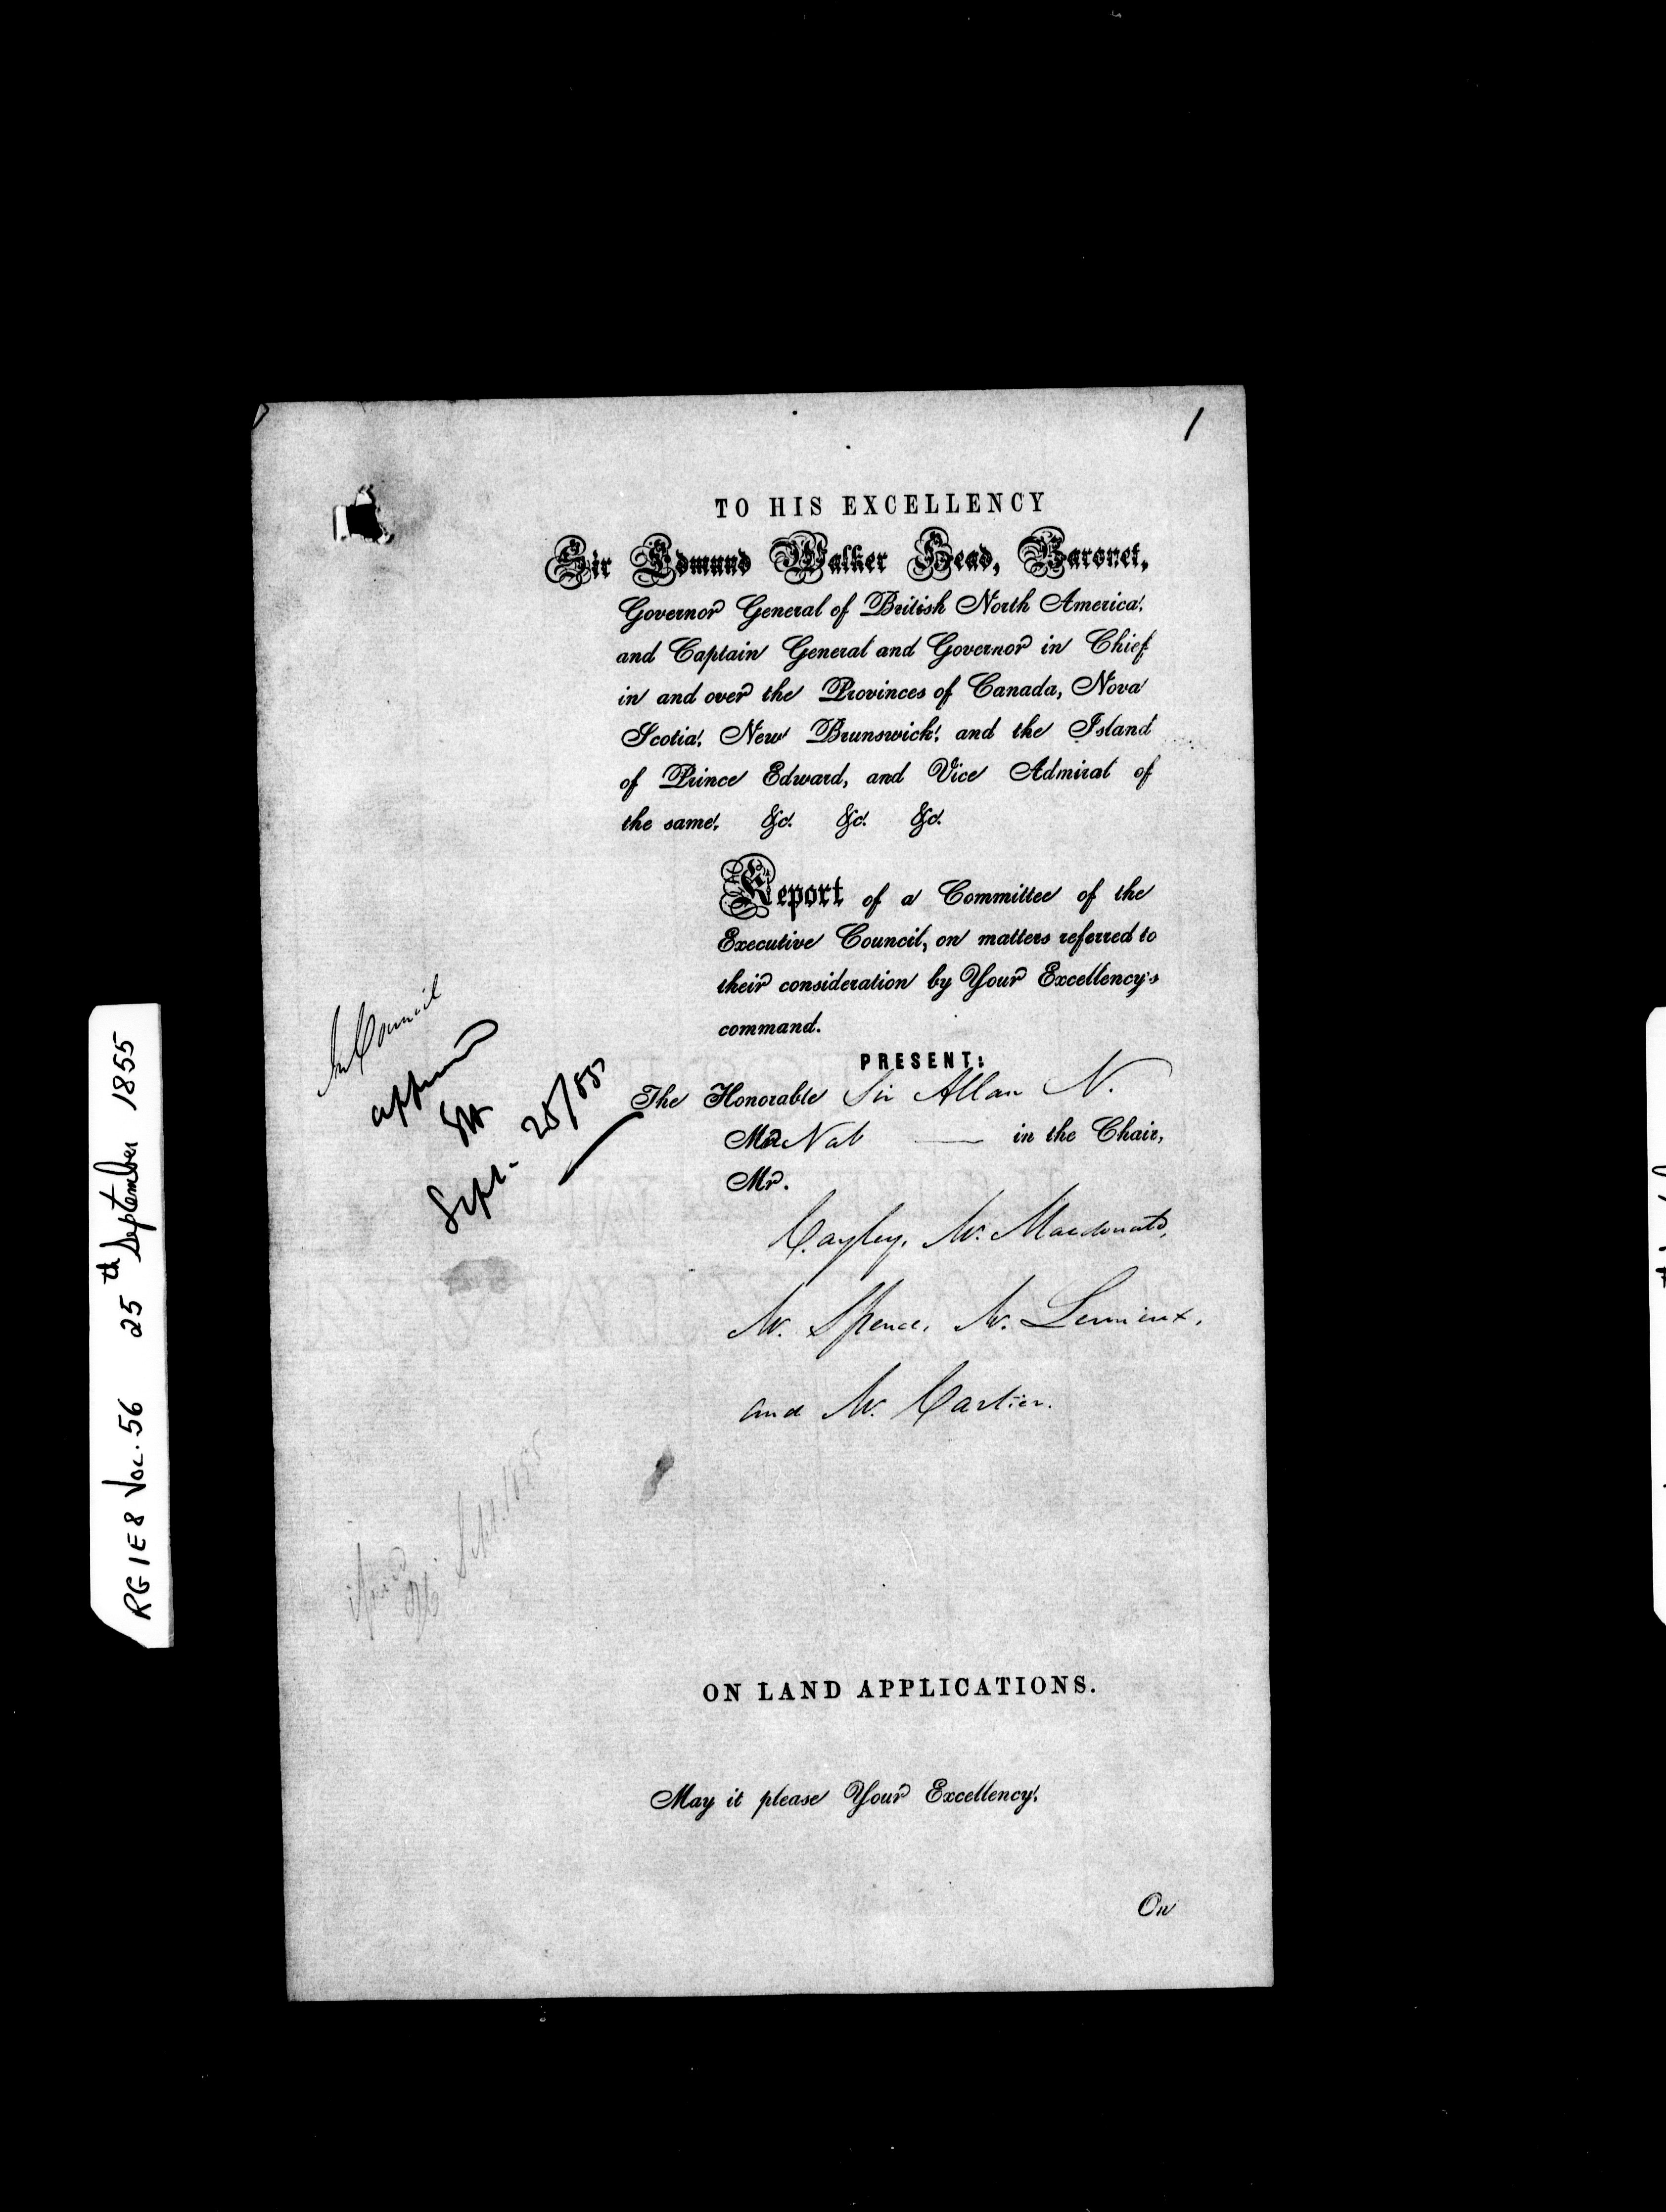 1
TO HIS EXCELLENCY
Sir Edmund Walker Head, Baronet,
Governor General of British North America,
and Captain General and Governor in Chief
in and over the Provinces of Canada, Nova
Scotia, New Brunswick, and the Island
of Prince Edward, and Vice Admiral of
the same, &c. &c. &c.
Report of a Committee of the
Executive Council, on matters referred to
their consideration by Your Excellency's
command.
PRESENT:
The Honorable Sir Allan N.
MacNab — in the Chair,
Mr.
Cayley, Mr. Macdonald,
Mr. Spence, Mr. Lemieux,
and Mr. Cartier.
In Council
approved
EH
Sept. 25/55
Sept. 1855
ON LAND APPLICATIONS.
May it please Your Excellency,
On
RG 1 E 8 VOL. 56 25th September 1855